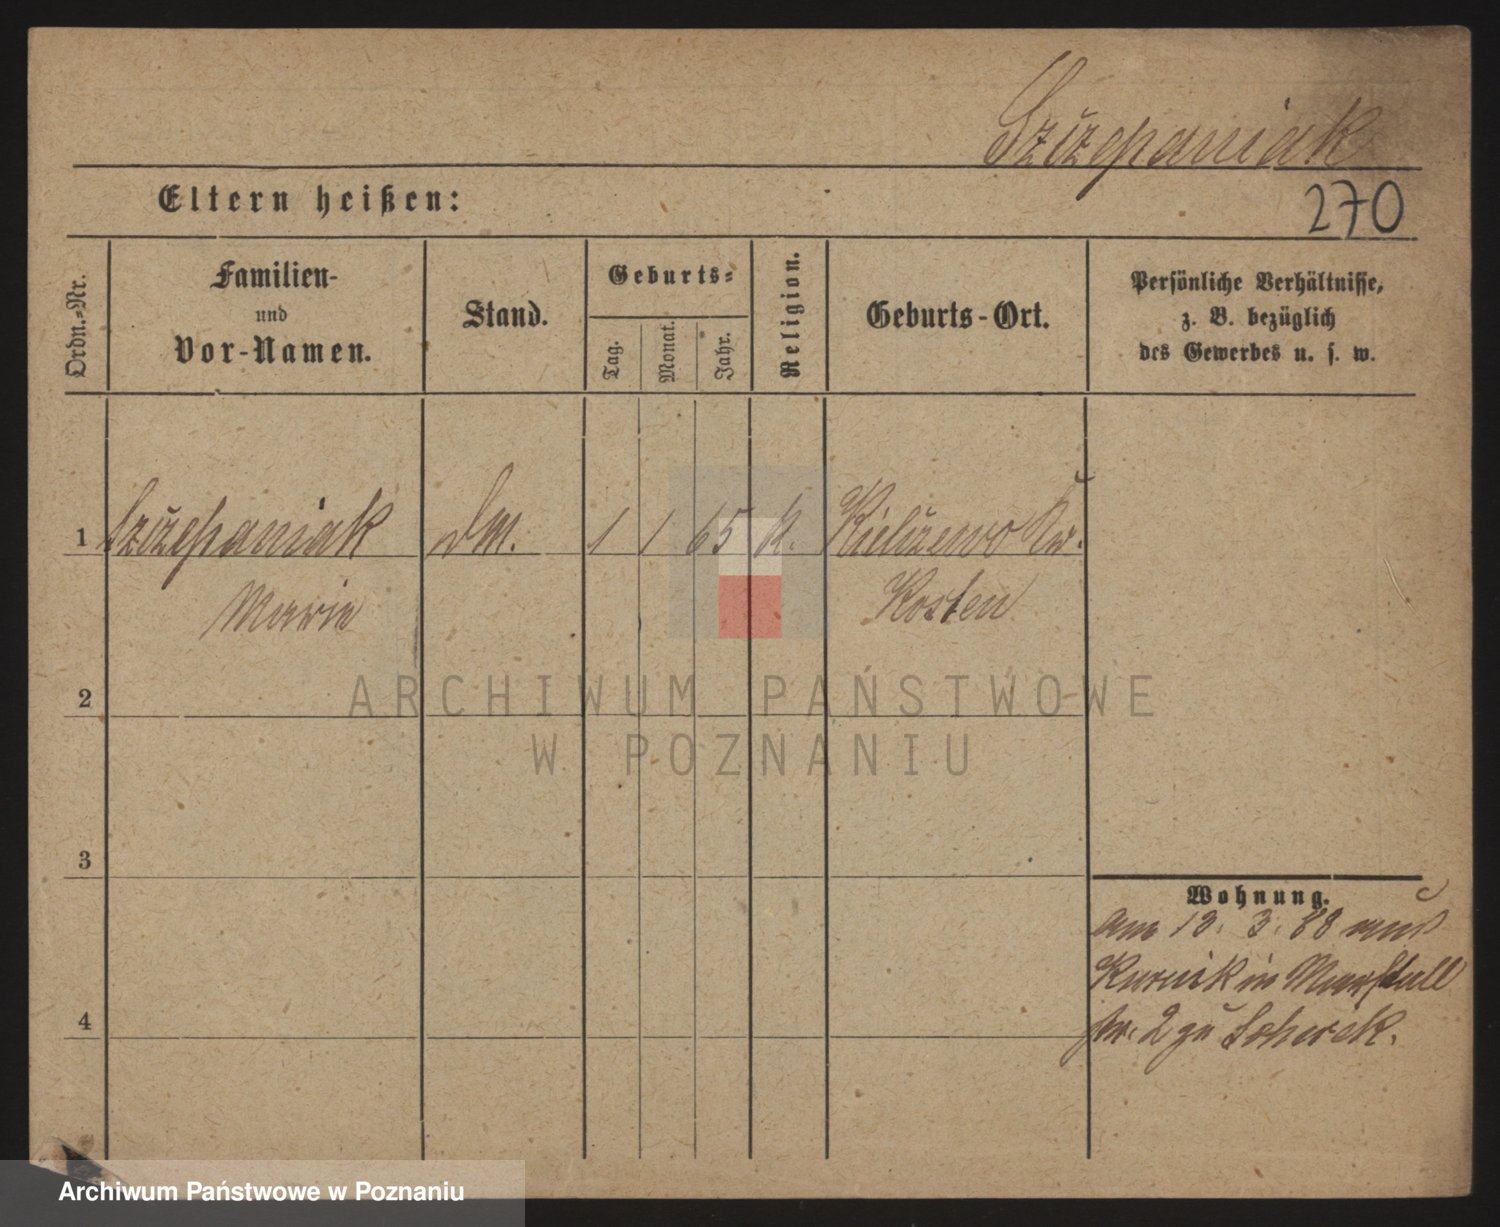 Szczepaniak
Eltern heißen:
270
Ordn.-Nr.
Familien-
und
Vor-Namen.
Stand.
Geburts-
Tag.
Monat.
Jahr.
Religion.
Geburts-Ort.
Persönliche Verhältnisse,
z. B. bezüglich
des Gewerbes u. s. w.
1 Szczepaniak Dm. 1 1 65 k. Kielczewo Kr.
Marie Kosten
2
ARCHIWUM PAŃSTWOWE
W POZNANIU
3
Wohnung.
am 13. 3. 88 aus
Kurnik in Marstall
str. 2 zu
4
Archiwum Państwowe w Poznaniu